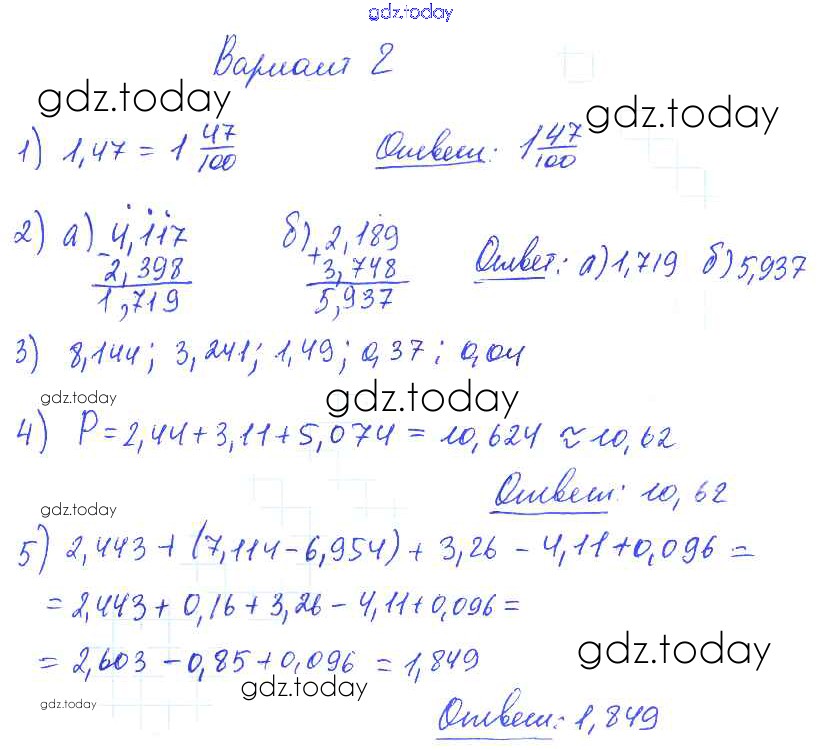 gdz.today
Вариант 2
gdz.today gdz.today
1) 1,47 = 1 47/100 Ответ: 1 47/100
2) а) - 4,117 б) + 2,189
2,398 3,748 Ответ: а) 1,719 б) 5,937
1,719 5,937
3) 8,144; 3,241; 1,49; 0,37; 0,04
gdz.today gdz.today
4) P = 2,44 + 3,11 + 5,074 = 10,624 ≈ 10,62
Ответ: 10,62
gdz.today
5) 2,443 + (7,114 - 6,954) + 3,26 - 4,11 + 0,096 =
= 2,443 + 0,16 + 3,26 - 4,11 + 0,096 =
gdz.today
= 2,603 - 0,85 + 0,096 = 1,849
gdz.today
gdz.today
Ответ: 1,849